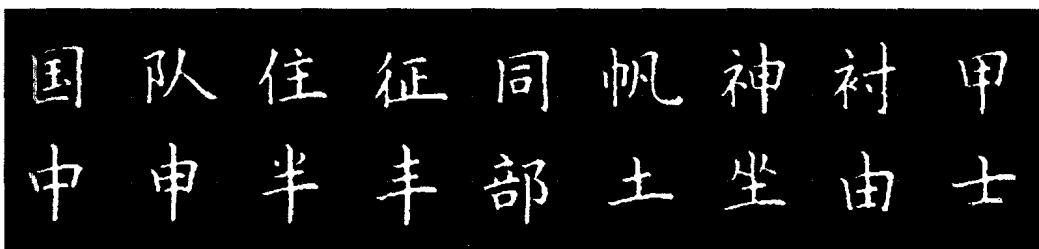 国队住征同帆神衬甲
中申半丰部土坐由士